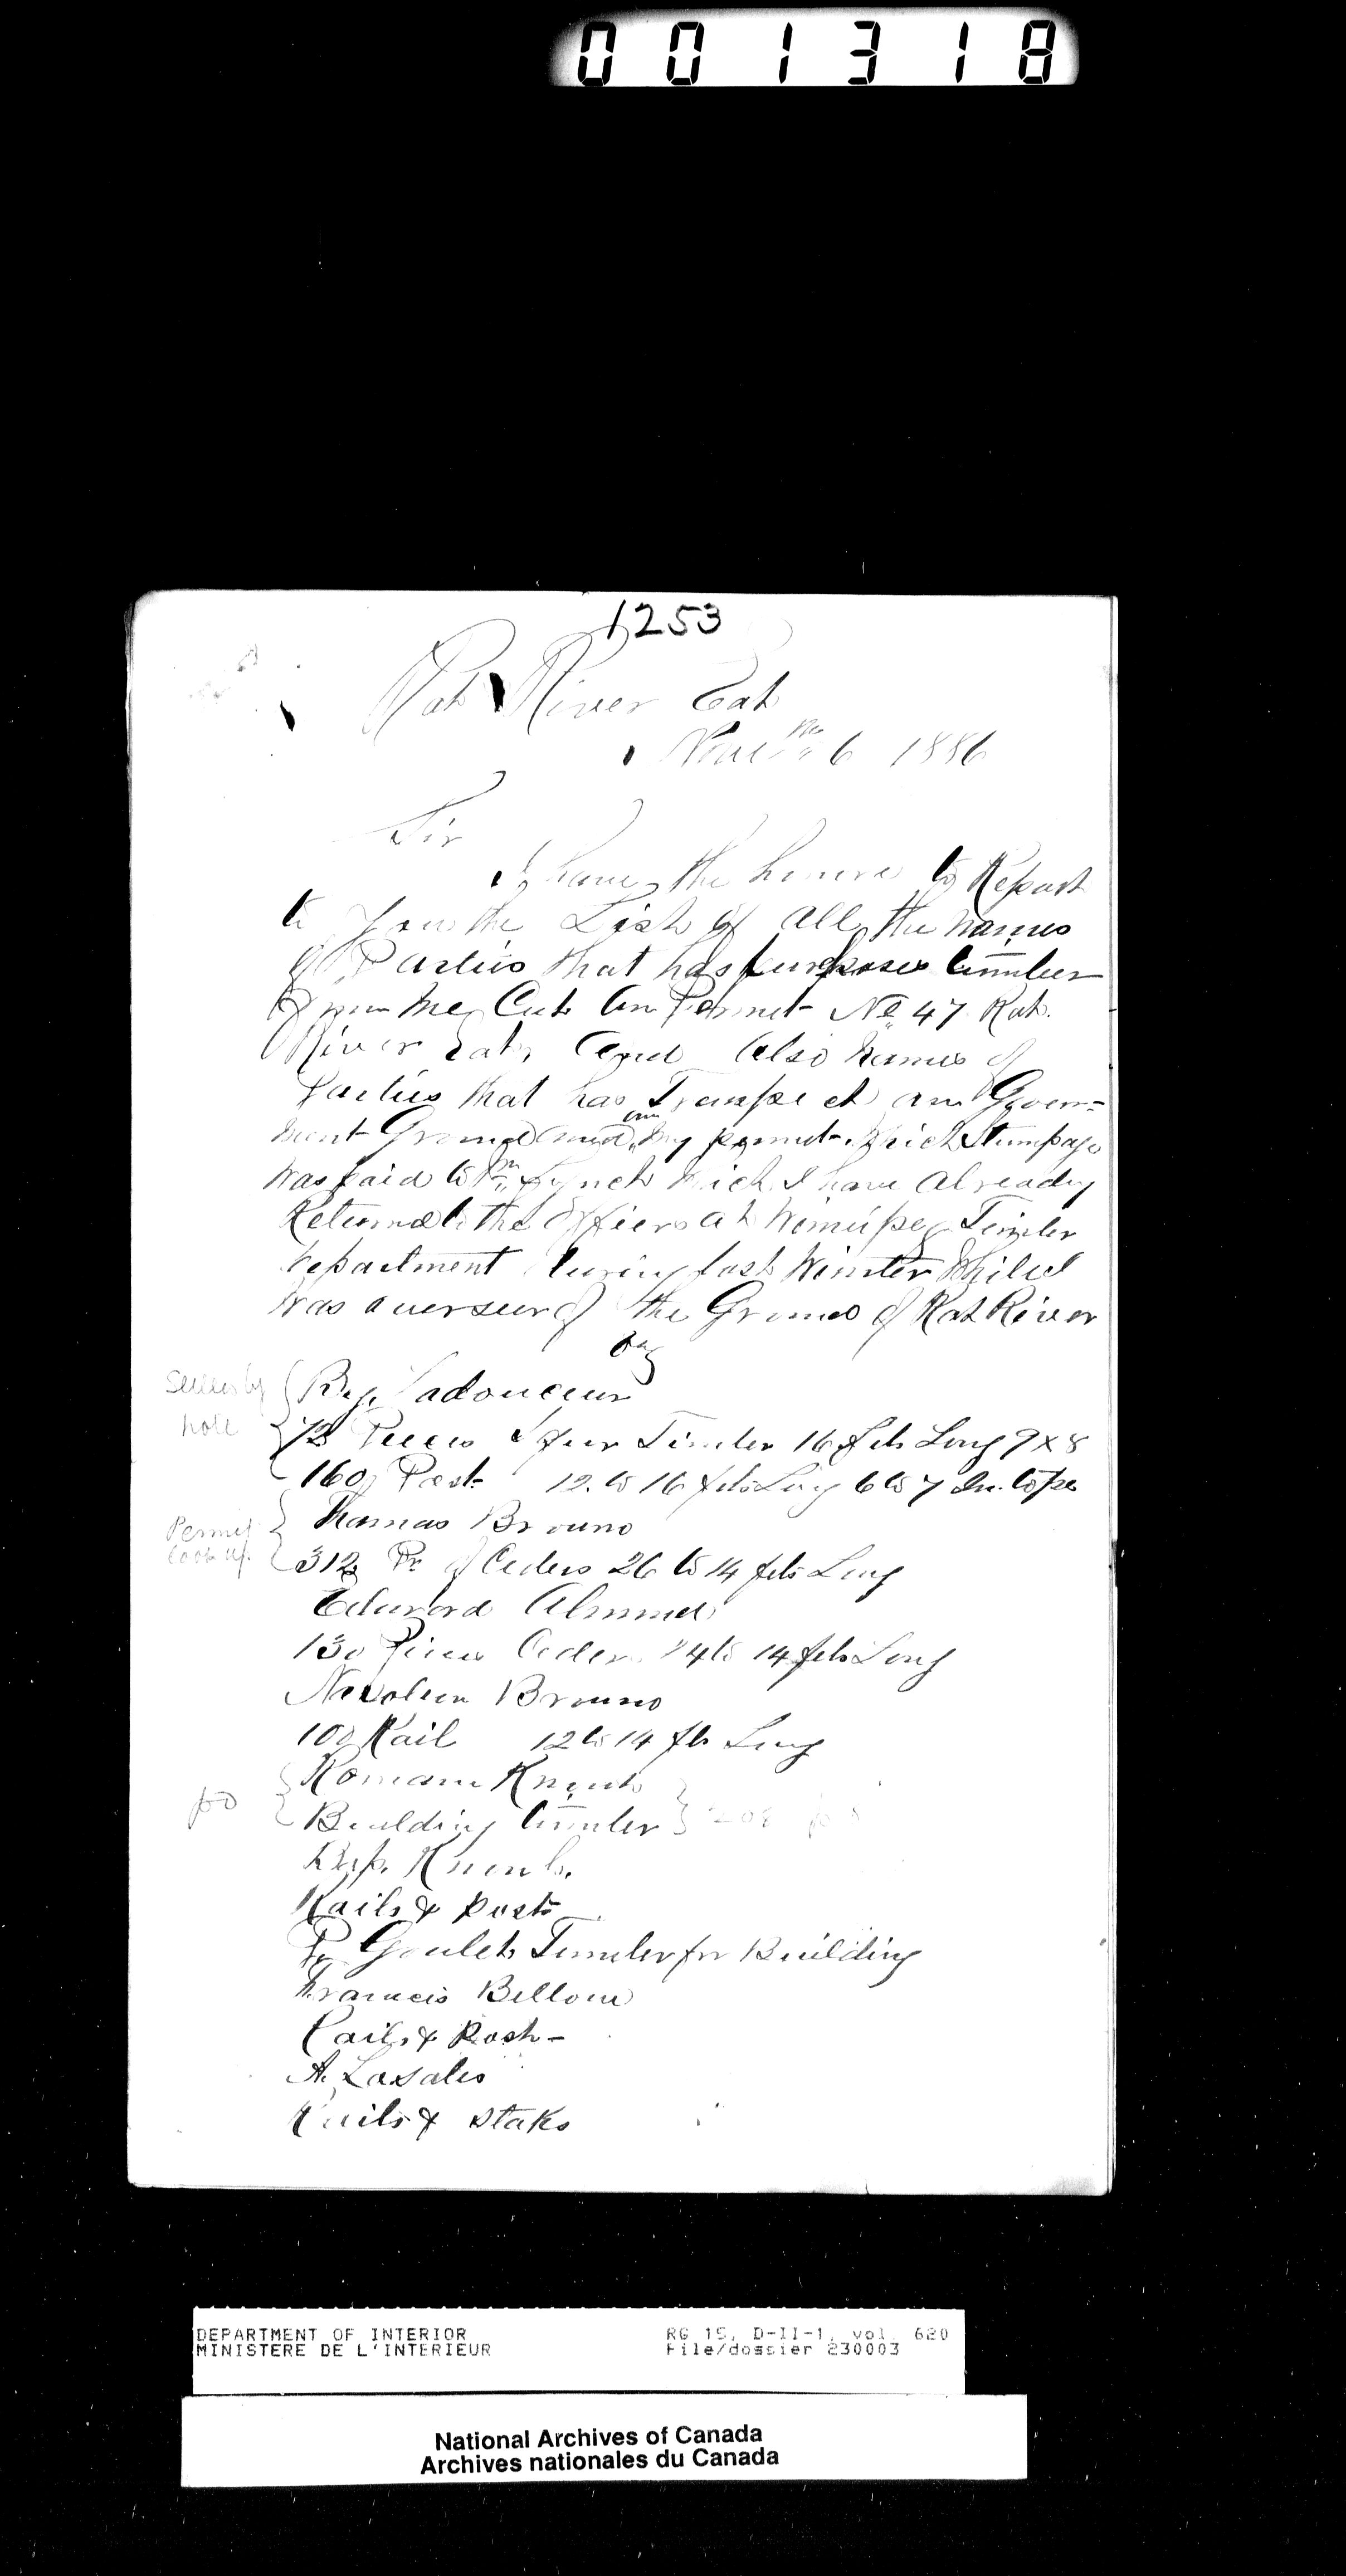 001318
1253
Rat River Eat
6 1886
Sir
I have the honure to Report
to you the List of all the names
of Parties that has purchases timber
from me Cut on Permit No 47 Rat
River Eat, and also names of
Parties that has Trespe et on Govern=
ment Ground and on my permit which Stumpage
was paid to Mr Lynch which I have already
Returnd to the officers at Winnipeg Timber
department during last Winter While I
was a overseur of the Grounds of Rat River
Settled by note
Bap. Ladouceur
72 Pieces of fur Timber 16 feh Long 9 x 8
160 Post 12 to 16 feh Long 6 to 7 In. tope
Permit look up.
Thomas Brouno
312 Pc of Ceders 26 to 14 feh Long
Edward
130 Pieces Ceder 24 to 14 feh Long
Napoleon Brouno
100 Rail 12 to 14 ft Long
Romain
Building timber 208
Bap.
Rails & Posts
Goulet Timber for Building
Francis
Rails & Posh -
A. Lasales
Rails & Staks
DEPARTMENT OF INTERIOR
MINISTERE DE L'INTERIEUR
RG 15, D-II-1, vol. 620
File/dossier 230003
National Archives of Canada
Archives nationales du Canada